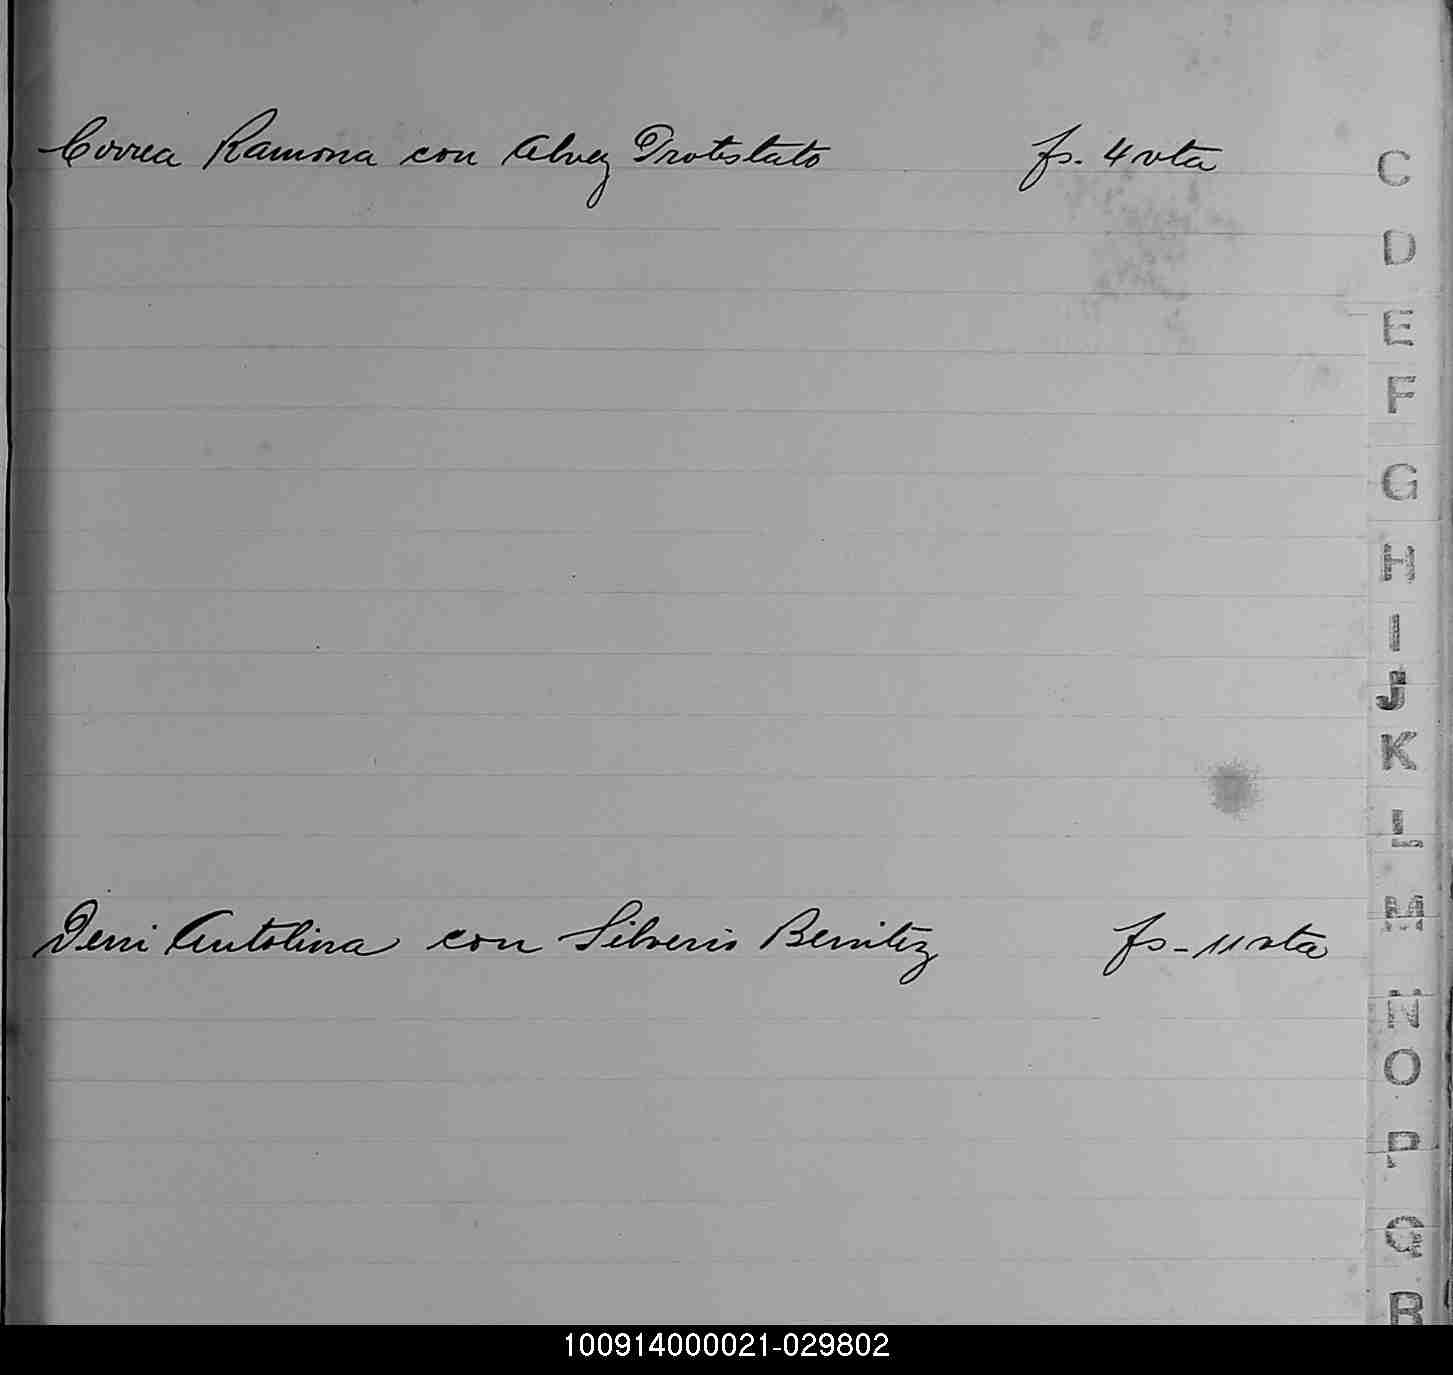 Correa Ramona con Alvez Protestato fs. 4 vta
C
D
E
F
G
H
I
J
K
L
M
Deni Antolina con Silverio Benitez fs - 11 vta
N
O
P
Q
R
100914000021-029802